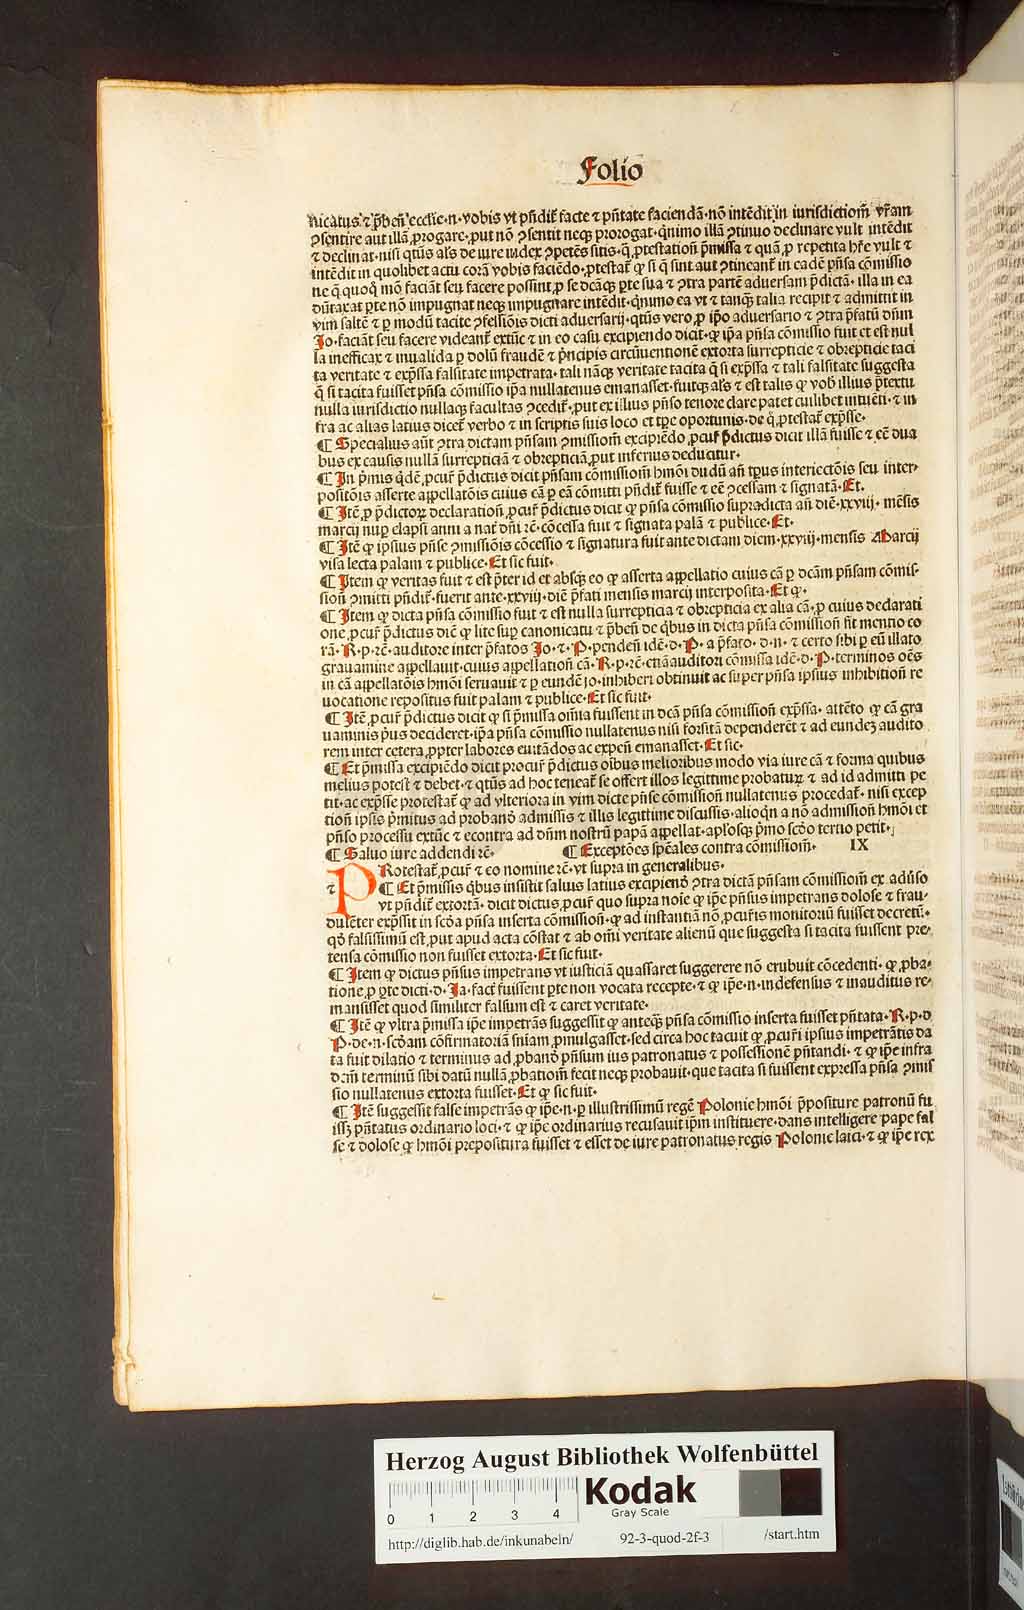 Folio
nicatus ⁊ p̄ben̄ ecclie·n·vobis vt pn̄dit̄ facte ⁊ pn̄tate faciendā·nō intēdit in iurisdictiom̄ vr̄am
ꝯsentire aut illā ꝓrogare·put nō ꝯsentit neqꝫ prorogat·qnimo illā ꝯtinuo declinare vult intēdit
⁊ declinat·nisi qtūs als̄ de iure iudex ꝯpetēs sitis·q̄ ꝓtestation̄ pm̄issa ⁊ quā ꝓ repetita hr̄e vult ⁊
intēdit in quolibet actu corā vobis faciēdo·ꝓtestat̄ ꝙ si q̄ sint aut ꝯtineant̄ in eadē pn̄sa cōmissio
ne q̄ quoqꝫ mō faciāt seu facere possint ꝓ se dcāqꝫ ꝑte sua ⁊ ꝯtra partē aduersam p̄dictā·illa in ea
dūtaxat ꝑte nō impugnat neqꝫ impugnare intēdit·qnymo ea vt ⁊ tanqꝫ talia recipit ⁊ admittit in
vim saltē ⁊ ꝑ modū tacite ꝯfessiōis dicti aduersarij·qtūs vero ꝓ ip̄o aduersario ⁊ ꝯtra p̄fatū dn̄m
Jo·faciāt seu facere videant̄ extūc ⁊ in eo casu excipiendo dicit·ꝙ ip̄a pn̄sa cōmissio fuit et est nul
la inefficax ⁊ inualida ꝑ dolū fraudē ⁊ p̄ncipis circūuentionē extorta surrepticie ⁊ obrepticie taci
ta veritate ⁊ exp̄ssa falsitate impetrata·tali nāqꝫ veritate tacita q̄ si exp̄ssa ⁊ tali falsitate suggesta
q̄ si tacita fuisset pn̄sa cōmissio ip̄a nullatenus emanasset·fuitqꝫ als̄ ⁊ est talis ꝙ vob̄ illius p̄textu
nulla iurisdictio nullaqꝫ facultas ꝯcedit̄·put ex illius pn̄so tenore clare patet cuilibet intuēti·⁊ in
fra ac alias latius dicet̄ verbo ⁊ in scriptis suis loco et tꝑe oportunis·de q̄ ꝓtestat̄ exp̄sse·
¶ Specialius aūt ꝯtra dictam pn̄sam ꝯmissiom̄ excipiēdo ꝓcur̄ p̄dictus dicit illā fuisse ⁊ eē dua
bus ex causis nullā surrepticiā ⁊ obrepticiā put inferius deducitur·
¶ In p̄mis q̄dē ꝓcur̄ p̄dictus dicit pn̄sam cōmissiom̄ hm̄oi dudū an̄ tpus interiectōis seu inter⸗
positōis asserte appellatōis cuius cā ꝑ eā cōmitti pn̄dit̄ fuisse ⁊ eē ꝯcessam ⁊ signatā·Et·
¶ Itē ꝑ p̄dictoꝝ declaration̄ ꝓcur̄ p̄dictus dicit ꝙ pn̄sa cōmissio supradicta an̄ diē·xxviij·mēsis
marcij nuꝑ elapsi anni a nat̄ dn̄i rē·cōcessa fuit ⁊ signata palā ⁊ publice·Et·
¶ Itē ꝙ ipsius pn̄se ꝯmissiōis cōcessio ⁊ signatura fuit ante dictam diem·xxviij·mensis Marcij
visa lecta palam ⁊ publice·Et sic fuit·
¶ Item ꝙ veritas fuit ⁊ est p̄ter id et absqꝫ eo ꝙ asserta appellatio cuius cā ꝑ dcām pn̄sam cōmis⸗
sion̄ ꝯmitti pn̄dit̄·fuerit ante·xxviij·diē p̄fati mensis marcij interposita·Et ꝙ·
¶ Item ꝙ dicta pn̄sa cōmissio fuit ⁊ est nulla surrepticia ⁊ obrepticia ex alia cā·ꝓ cuius declarati
one ꝓcur̄ p̄dictus diē ꝙ lite suꝑ canonicatu ⁊ p̄ben̄ de qb̄us in dicta pn̄sa cōmission̄ fit mentio co
rā·R·p·rē·auditore inter p̄fatos Jo·⁊·P·penden̄ idē·d·P·a p̄fato·d·n·⁊ certo sibi ꝑ eū illato
grauamine appellauit·cuius appellation̄ cā·R·p·rē·etiā auditori cōmissa idē·d·P·terminos oēs
in cā appellatōis hm̄oi seruauit ⁊ ꝑ eundē io·inhiberi obtinuit ac super pn̄sa ipsius inhibition̄ re
uocatione repositus fuit palam ⁊ publice·Et sic fuit·
¶ Itē ꝓcur̄ p̄dictus dicit ꝙ si p̄missa om̄ia fuissent in dcā pn̄sa cōmission̄ exp̄ssa·attēto ꝙ cā gra
uaminis p̄us decideret·ip̄a pn̄sa cōmissio nullatenus nisi forsitā dependerēt ⁊ ad eundeꝫ audito
rem inter cetera ꝓpter labores euitādos ac expen̄ emanasset·Et sic·
¶ Et p̄missa excipiēdo dicit procur̄ p̄dictus oīb̄us melioribus modo via iure cā ⁊ forma quibus
melius potest ⁊ debet·⁊ qtūs ad hoc teneat̄ se offert illos legittime probaturꝫ ⁊ ad id admitti pe
tit·ac exp̄sse protestat̄ ꝙ ad vlteriora in vim dicte pn̄se cōmission̄ nullatenus procedat̄·nisi excep
tion̄ ipsis p̄mitus ad probanō admissis ⁊ illis legittime discussis·alioqn̄ a nō admission̄ hm̄oi et
pn̄so processu extūc ⁊ econtra ad dn̄m nostrū papā appellat·apl̄osqꝫ p̄mo scōo tertio petit·
¶ Saluo iure addendi rē· ¶ Exceptōes sp̄eales contra cōmissiom̄· IX
PRotestat̄ ꝓcur̄ ⁊ eo nomine rē·vt supra in generalibus·
⁊ ¶ Et p̄missis qb̄us insistit saluis latius excipienō ꝯtra dictā pn̄sam cōmissiom̄ ex adūso
vt pn̄dit̄ extortā·dicit dictus ꝓcur̄ quo supra noīe ꝙ ip̄e pn̄sus impetrans dolose ⁊ frau⸗
dulēter exp̄ssit in scōa pn̄sa inserta cōmission̄·ꝙ ad instantiā nō ꝓcur̄is monitoriū fuisset decretū·
qō falsissimū est put apud acta cōstat ⁊ ab om̄i veritate alienū que suggesta si tacita fuissent pre⸗
tensa cōmissio non fuisset extorta·Et sic fuit·
¶ Item ꝙ dictus pn̄sus impetrans vt iusticiā quassaret suggerere nō erubuit cōcedenti·ꝙ ꝓba⸗
tione ꝓ ꝑte dicti·d·Ja·fact̄ fuissent ꝑte non vocata recepte·⁊ ꝙ ip̄e·n·indefensus ⁊ inauditus re⸗
mansisset quod similiter falsum est ⁊ caret veritate·
¶ Itē ꝙ vltra p̄missa ip̄e impetrās suggessit ꝙ anteqꝫ pn̄sa cōmissio inserta fuisset pn̄tata·R·p·d
P·de·n·scōam cōfirmatoriā sn̄iam ꝓmulgasset·sed circa hoc tacuit ꝙ ꝓcur̄i ipsius impetrātis da
ta fuit dilatio ⁊ terminus ad ꝓbanō pn̄sum ius patronatus ⁊ possessionē pn̄tandi·⁊ ꝙ ip̄e infra
dcm̄ terminū sibi datū nullā ꝓbatiom̄ fecit neqꝫ probauit·que tacita si fuissent expressa pn̄sa ꝯmis
sio nullatenus extorta fuisset·Et ꝙ sic fuit·
¶ Itē suggessit false impetrās ꝙ ip̄e·n·ꝑ illustrissimū regē Polonie hm̄oi p̄positure patronū fu
issꝫ pn̄tatus ordinario loci·⁊ ꝙ ip̄e ordinarius recusauit ip̄m instituere·dans intelligere pape fal
se ⁊ dolose ꝙ hm̄oi prepositura fuisset ⁊ esset de iure patronatus regis Polonie laici·⁊ ꝙ ip̄e rex
Herzog August Bibliothek Wolfenbüttel
0 1 2 3 4
Kodak
Gray Scale
http://diglib.hab.de/inkunabeln/ 92-3-quod-2f-3 /start.htm